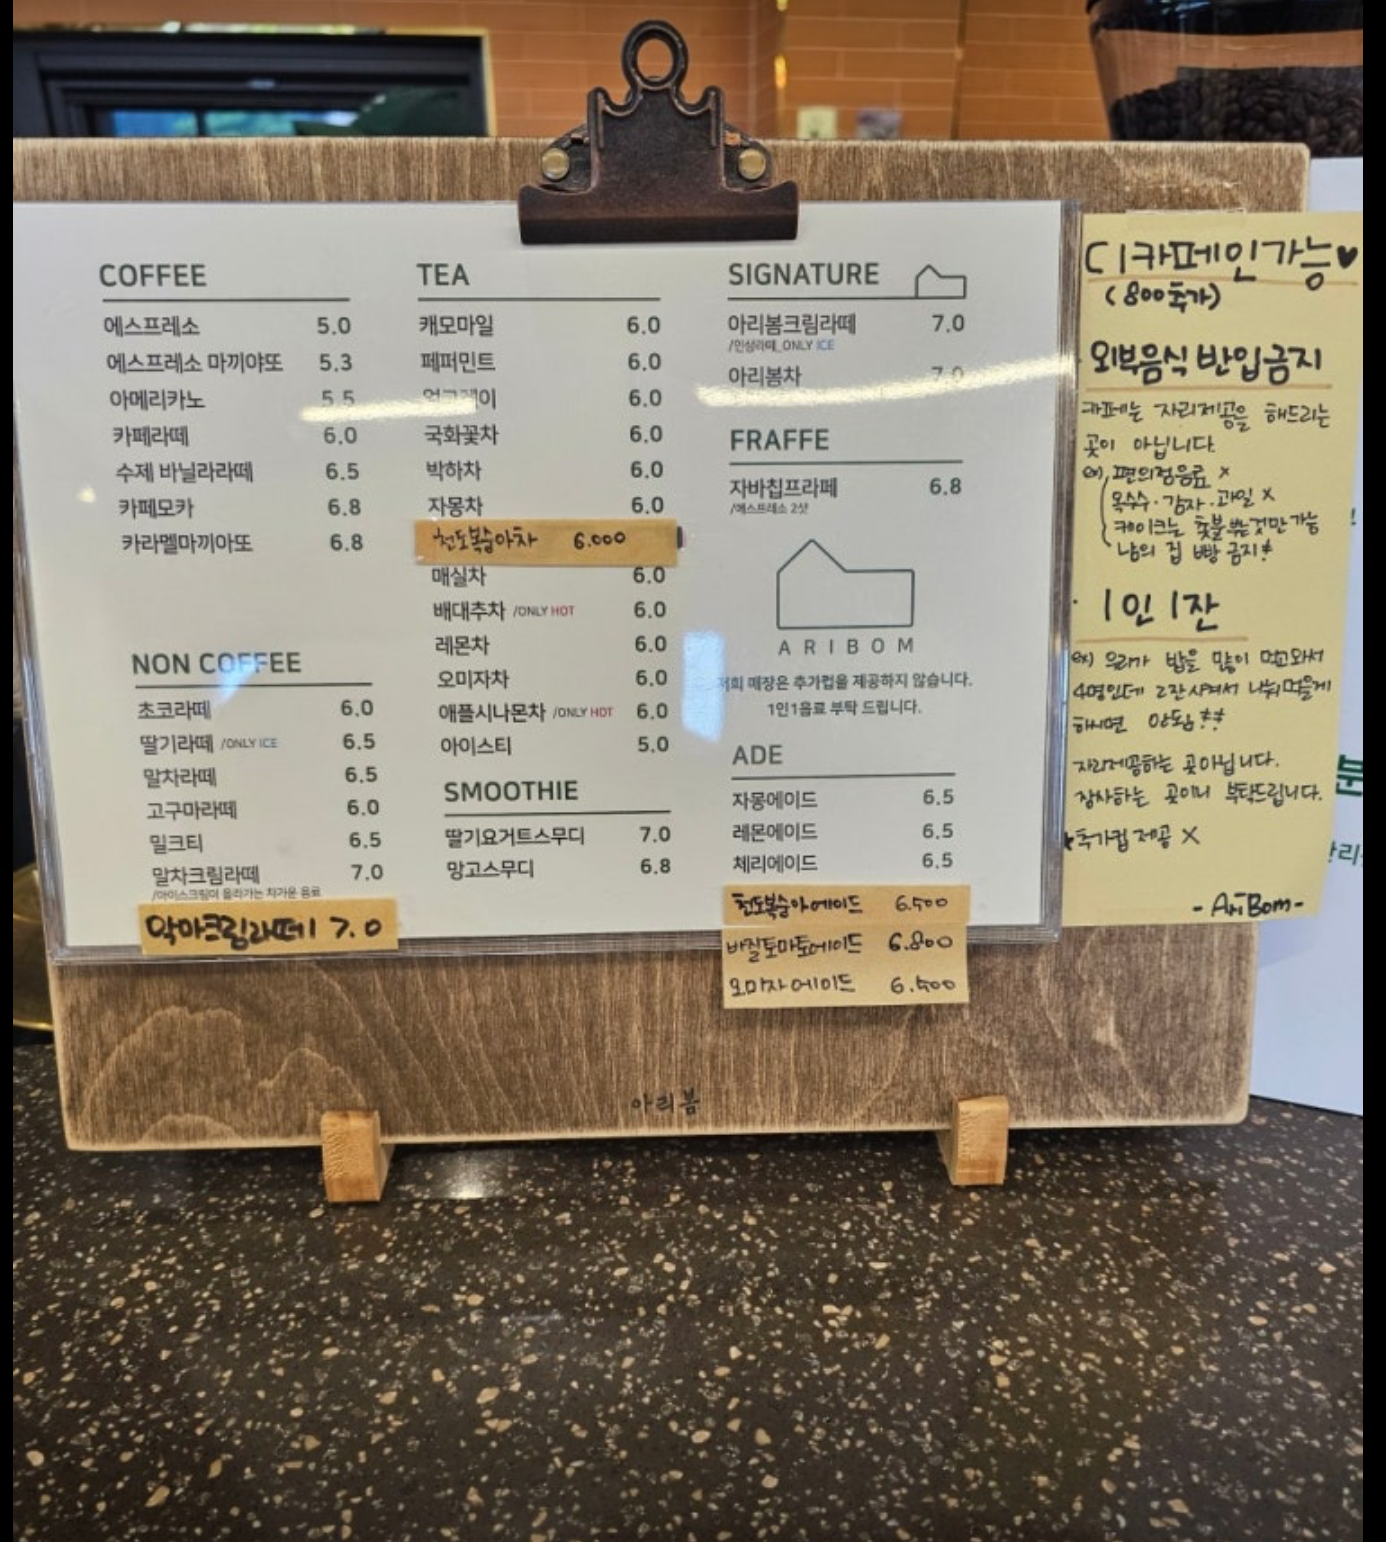 COFFEE
에스프레소 5.0
에스프레소 마끼야또 5.3
아메리카노 5.5
카페라떼 6.0
수제 바닐라라떼 6.5
카페모카 6.8
카라멜마끼아또 6.8
NON COFFEE
초코라떼 6.0
딸기라떼 /ONLY ICE 6.5
말차라떼 6.5
고구마라떼 6.0
밀크티 6.5
말차크림라떼 7.0
/아이스크림이 올라가는 차가운 음료
악마크림라떼 7.0
TEA
캐모마일 6.0
페퍼민트 6.0
6.0
국화꽃차 6.0
박하차 6.0
자몽차 6.0
천도복숭아차 6.000
매실차 6.0
배대추차 /ONLY HOT 6.0
레몬차 6.0
오미자차 6.0
애플시나몬차 /ONLY HOT 6.0
아이스티 5.0
SMOOTHIE
딸기요거트스무디 7.0
망고스무디 6.8
SIGNATURE
아리봄크림라떼 7.0
ONLY ICE
아리봄차 7.0
FRAFFE
자바칩프라페 6.8
/에스프레소 2샷
ARIBOM
저희 매장은 추가컵을 제공하지 않습니다.
1인1음료 부탁 드립니다.
ADE
자몽에이드 6.5
레몬에이드 6.5
체리에이드 6.5
천도복숭아에이드 6.500
바질토마토에이드 6.800
오미자에이드 6.500
디카페인가능♥
(800추가)
외부음식 반입금지
카페는 자리제공을 해드리는
곳이 아닙니다.
ex) 편의점음료 x
옥수수·감자·과일 x
케이크는 촛불부는것만가능
남의 집 빵 금지!
1인 1잔
ex) 우리가 밥을 많이 먹고와서
4명인데 2잔시켜서 나눠먹을게
하시면 안됨!!
자리제공하는 곳아닙니다.
장사하는 곳이니 부탁드립니다.
★추가컵 제공 X
- AriBom -
아리봄